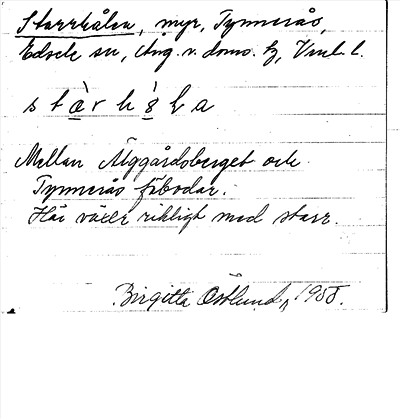 Starrhålen, myr, Tynnerås,
Edsele sn, Ång. v. doms. h,
s t à r h å l a
Mellan Älggårdsberget och
Tynnerås fäbodar.
Här växer rikligt med starr.
Birgitta Östlund, 1958.